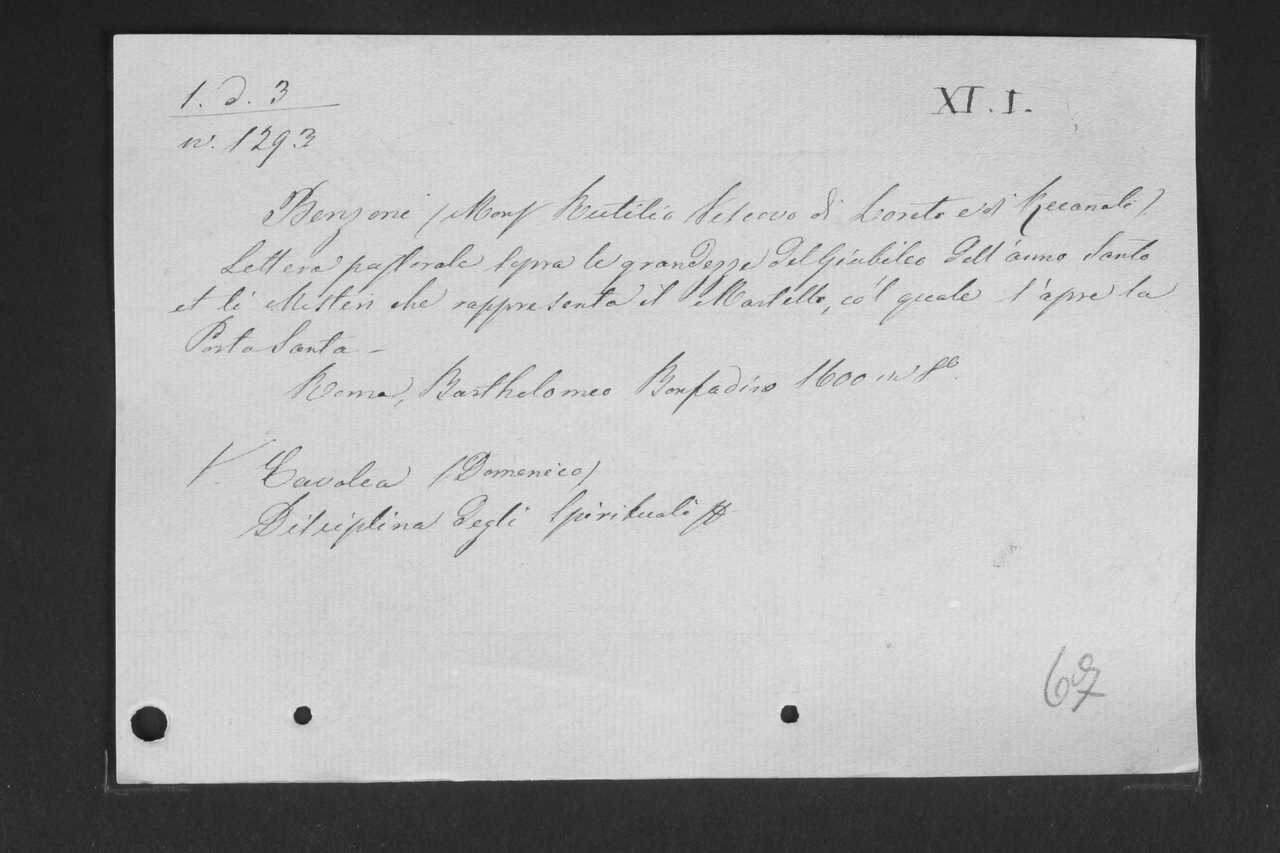 1. d. 3
XI. 1.
n. 1293
Benzoni (Mons Rutilio Vescovo di Loreto e di Recanati)
Lettera pastorale sopra le grandezze del Giubileo dell'anno Santo
et li Misteri che rappresenta il Martello, co'l quale s'apre la
Porta Santa -
Roma, Bartholomeo Bonfadino 1600 in 8º.
V. Cavalca (Domenico)
Disciplina degli Spirituali
67